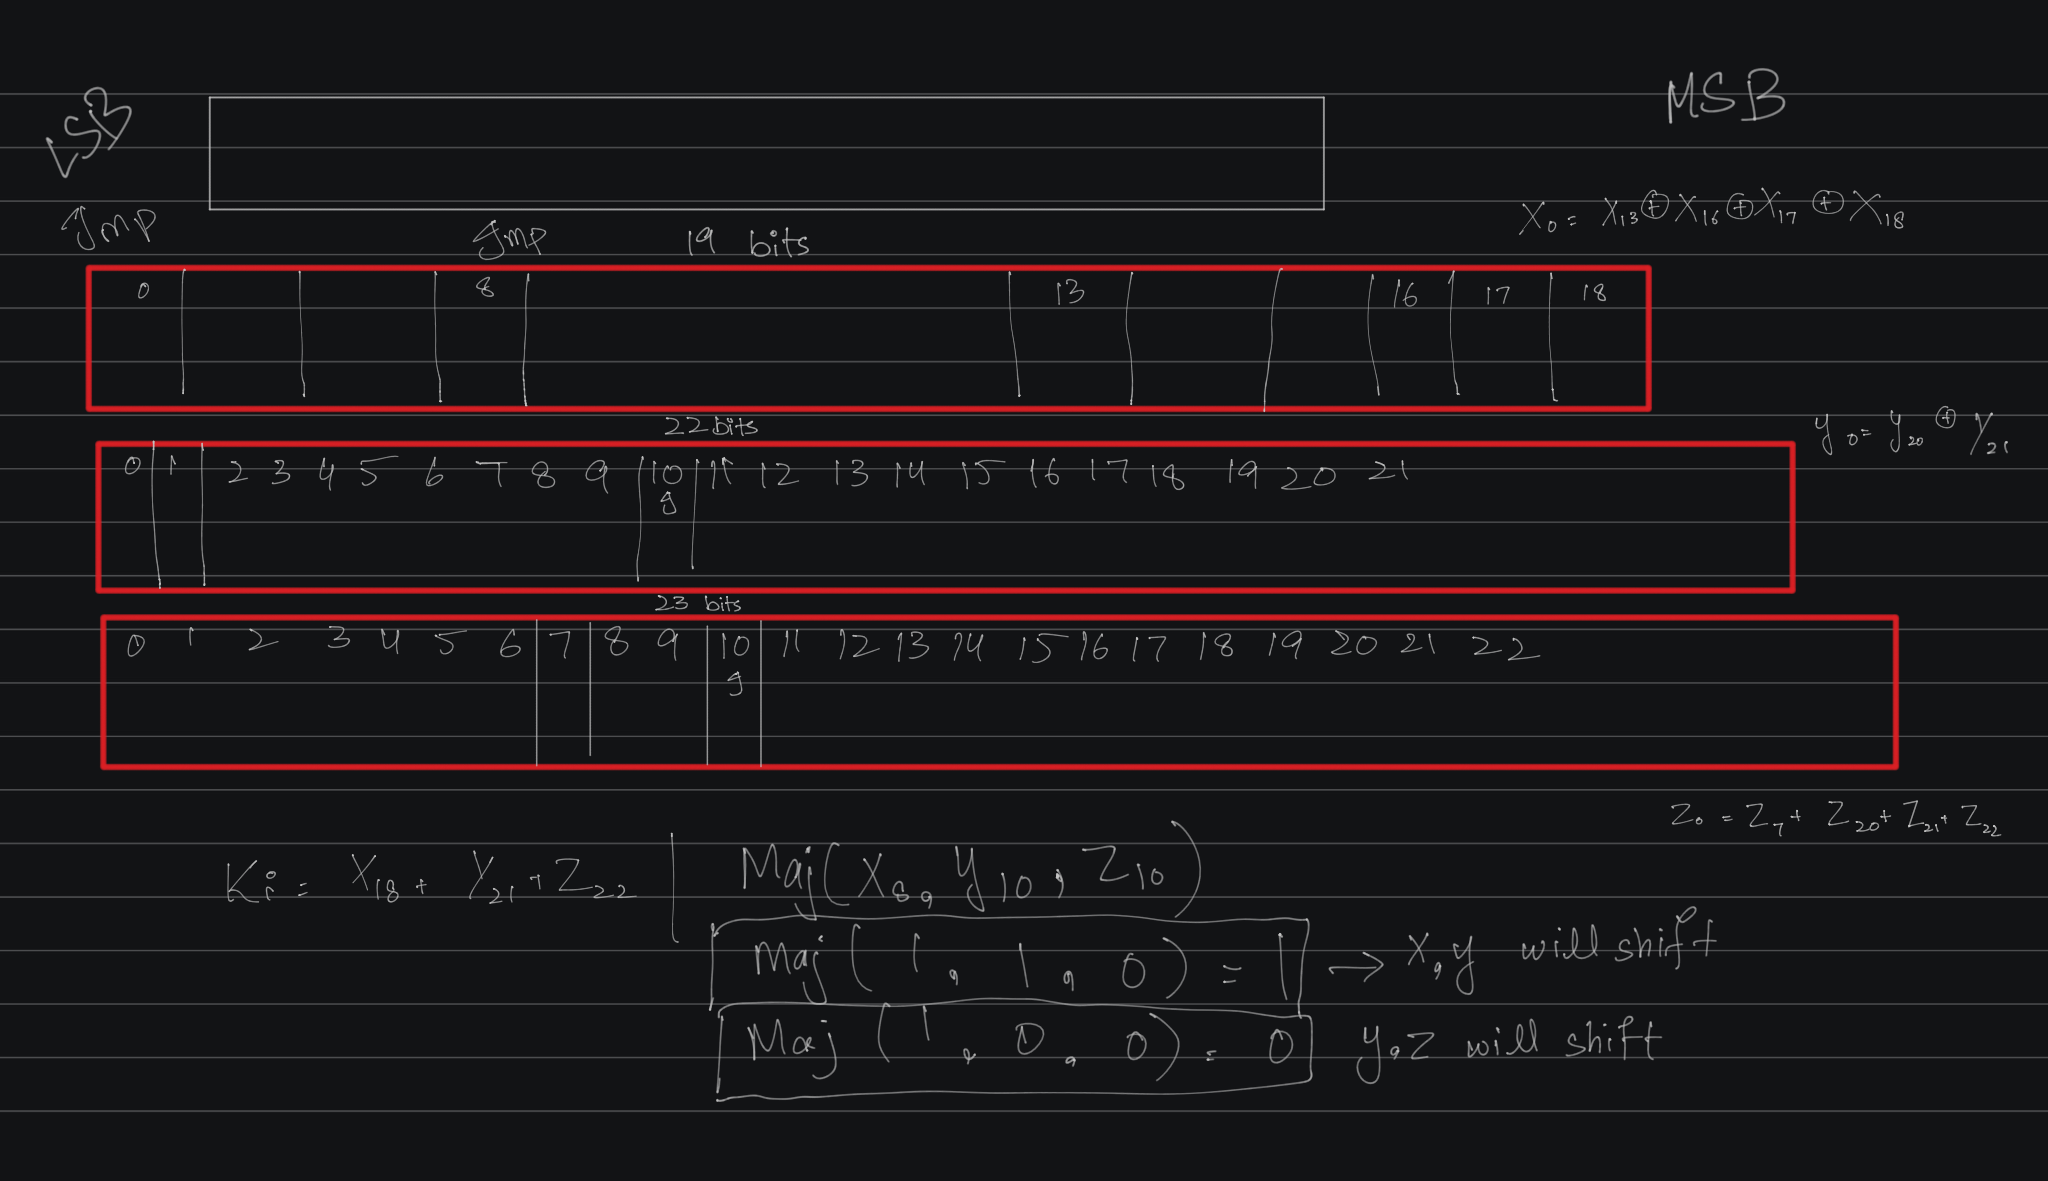 LSB
MSB
Imp
Imp 19 bits
X₀ = X₁₃ ⊕ X₁₆ ⊕ X₁₇ ⊕ X₁₈
0 8 13 16 17 18
22 bits
y₀ = y₂₀ ⊕ y₂₁
0 1 2 3 4 5 6 7 8 9 10 11 12 13 14 15 16 17 18 19 20 21
9
23 bits
0 1 2 3 4 5 6 7 8 9 10 11 12 13 14 15 16 17 18 19 20 21 22
9
Z₀ = Z₇ + Z₂₀ + Z₂₁ + Z₂₂
Ki = X₁₈ + Y₂₁ + Z₂₂ | Maj(X₈, y₁₀, Z₁₀)
Maj(1, 1, 0) = 1 → X, y will shift
Maj(1, 0, 0) = 0 y, z will shift